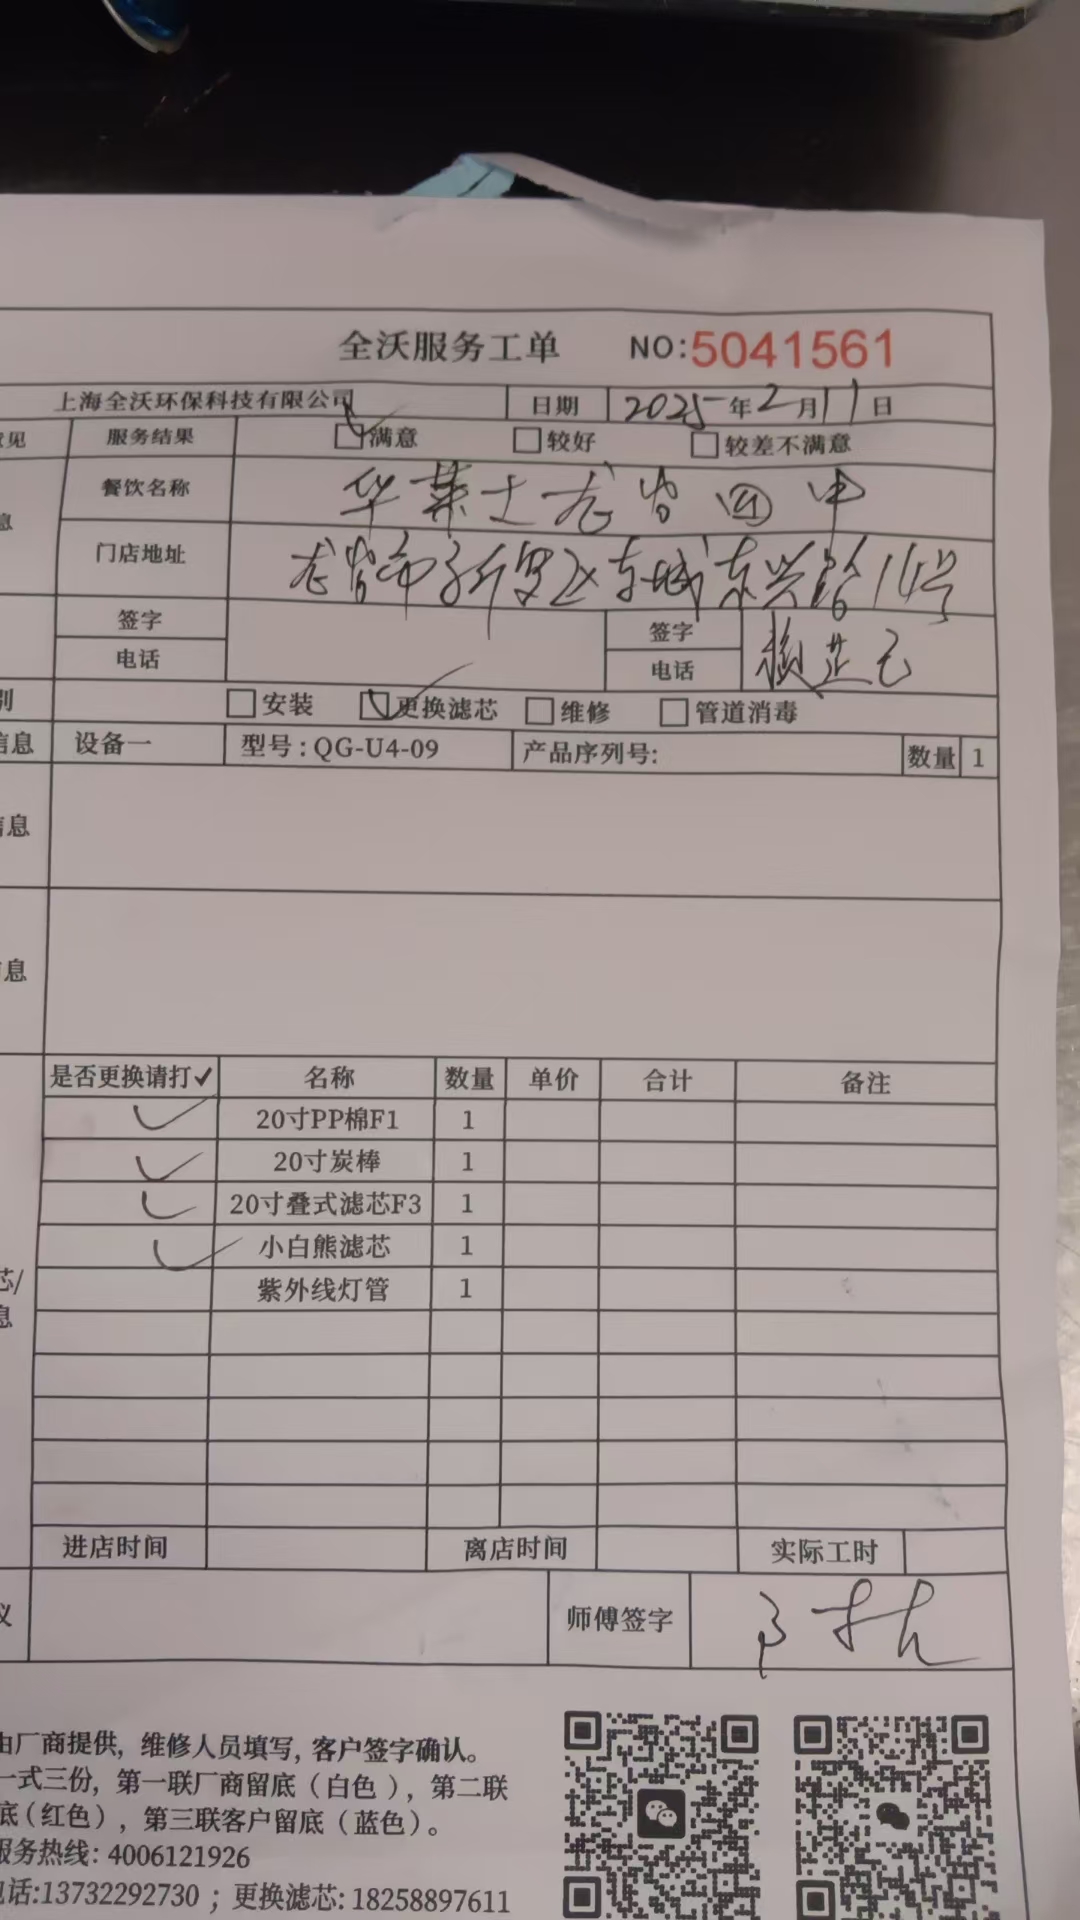 全沃服务工单 NO:5041561
上海全沃环保科技有限公司 日期 2025年2月11日
意见 服务结果 满意 较好 较差不满意
餐饮名称 华莱士龙岩四中
息 门店地址 龙岩市新罗区东城东兴路14号
签字 签字
电话 电话
别 安装 更换滤芯 维修 管道消毒
信息 设备一 型号:QG-U4-09 产品序列号: 数量 1
信息
信息
是否更换请打✓ 名称 数量 单价 合计 备注
✓ 20寸PP棉F1 1
✓ 20寸炭棒 1
✓ 20寸叠式滤芯F3 1
✓ 小白熊滤芯 1
芯/ 紫外线灯管 1
息
进店时间 离店时间 实际工时
议 师傅签字
由厂商提供, 维修人员填写, 客户签字确认。
一式三份, 第一联厂商留底(白色), 第二联
底(红色), 第三联客户留底(蓝色)。
服务热线: 4006121926
电话:13732292730 ; 更换滤芯: 18258897611